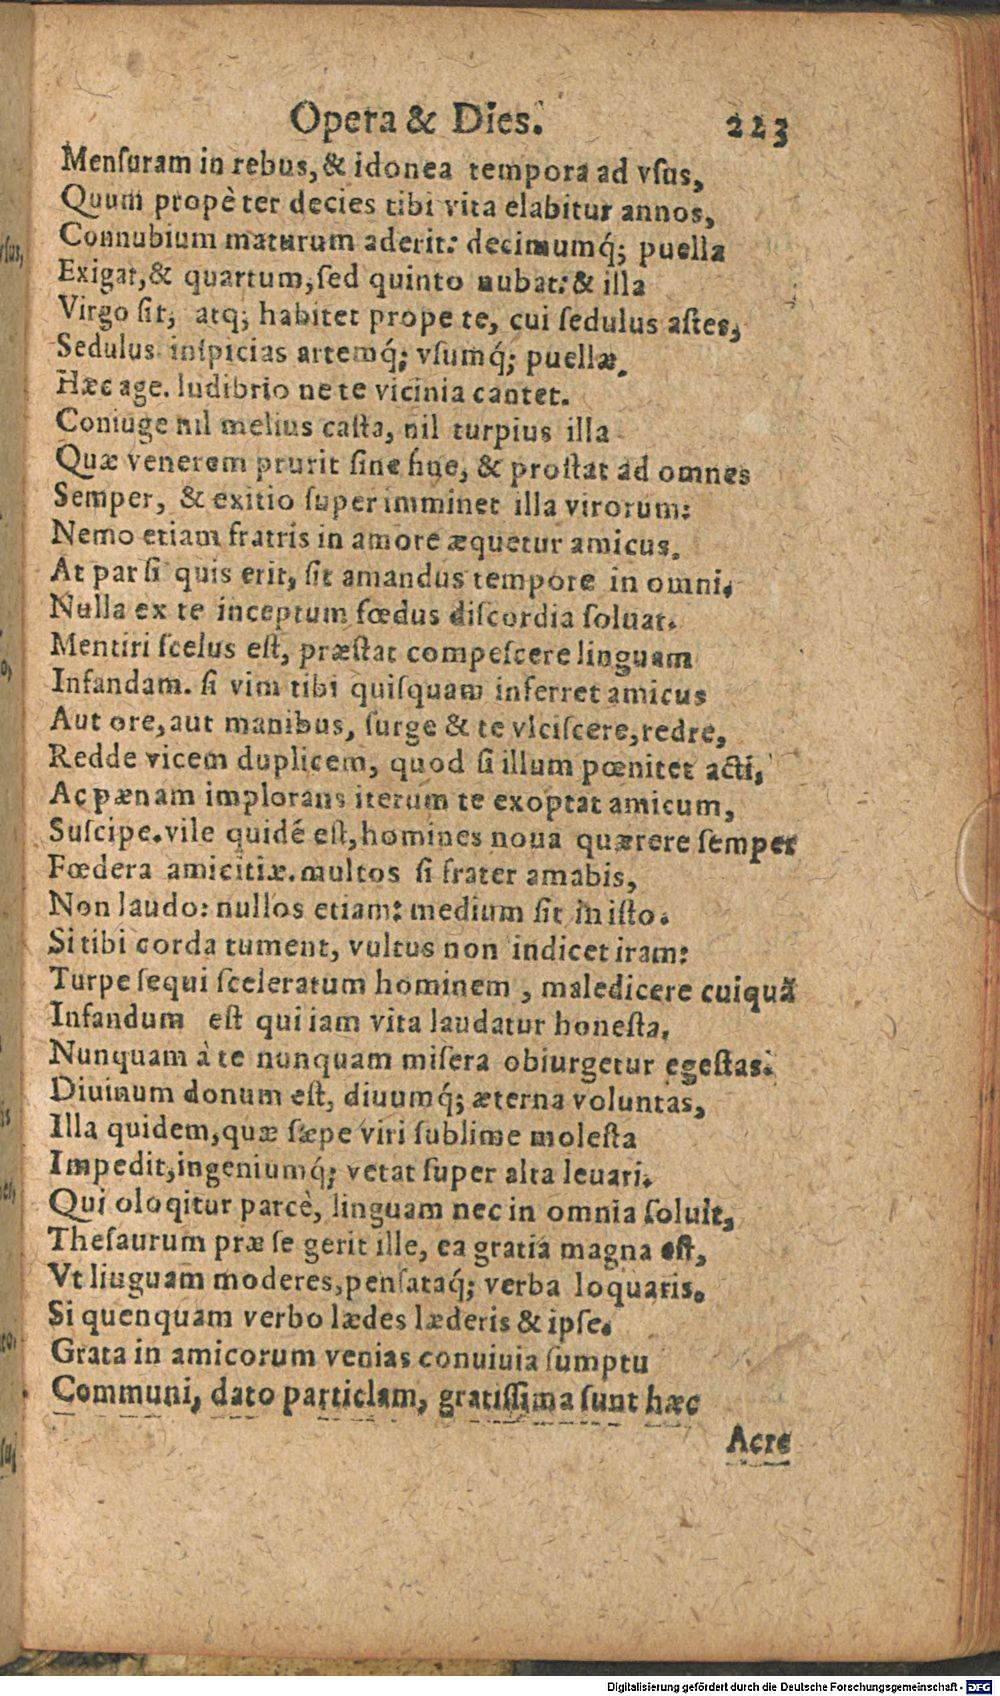 Opera & Dies. 223
Menſuram in rebus, & idonea tempora ad vſus,
Quum propè ter decies tibi vita elabitur annos,
Connubium maturum aderit: decimumq́; puella
Exigat, & quartum, ſed quinto nubat: & illa
Virgo ſit, atq; habitet prope te, cui ſedulus aſtes,
Sedulus inſpicias artemq́; vſumq́; puellæ.
Hæc age. ludibrio ne te vicinia cantet.
Coniuge nil melius caſta, nil turpius illa
Quæ venerem prurit ſine fine, & proſtat ad omnes
Semper, & exitio ſuper imminet illa virorum:
Nemo etiam fratris in amore æquetur amicus.
At par ſi quis erit, ſit amandus tempore in omni.
Nulla ex te inceptum fœdus diſcordia ſoluat.
Mentiri ſcelus eſt, præſtat compeſcere linguam
Infandam. ſi vim tibi quiſquam inferret amicus
Aut ore, aut manibus, ſurge & te vlciſcere, redre,
Redde vicem duplicem, quod ſi illum pœnitet acti,
Ac pænam implorans iterum te exoptat amicum,
Suſcipe. vile quidé eſt, homines noua quærere ſemper
Fœdera amicitiæ. multos ſi frater amabis,
Non laudo: nullos etiam: medium ſit in iſto.
Si tibi corda tument, vultus non indicet iram:
Turpe ſequi ſceleratum hominem , maledicere cuiquã
Infandum eſt qui iam vita laudatur honeſta.
Nunquam à te nunquam miſera obiurgetur egeſtas.
Diuinum donum eſt, diuumq́; æterna voluntas,
Illa quidem, quæ ſæpe viri ſublime moleſta
Impedit, ingeniumq́; vetat ſuper alta leuari.
Qui oloqitur parcè, linguam nec in omnia ſoluit,
Theſaurum præ ſe gerit ille, ea gratia magna eſt,
Vt linguam moderes, penſataq́; verba loquaris.
Si quenquam verbo lædes læderis & ipſe.
Grata in amicorum venias conuiuia ſumptu
Communi, dato particlam, gratiſſima ſunt hæc
Acre
Digitalisierung gefördert durch die Deutsche Forschungsgemeinschaft - DFG